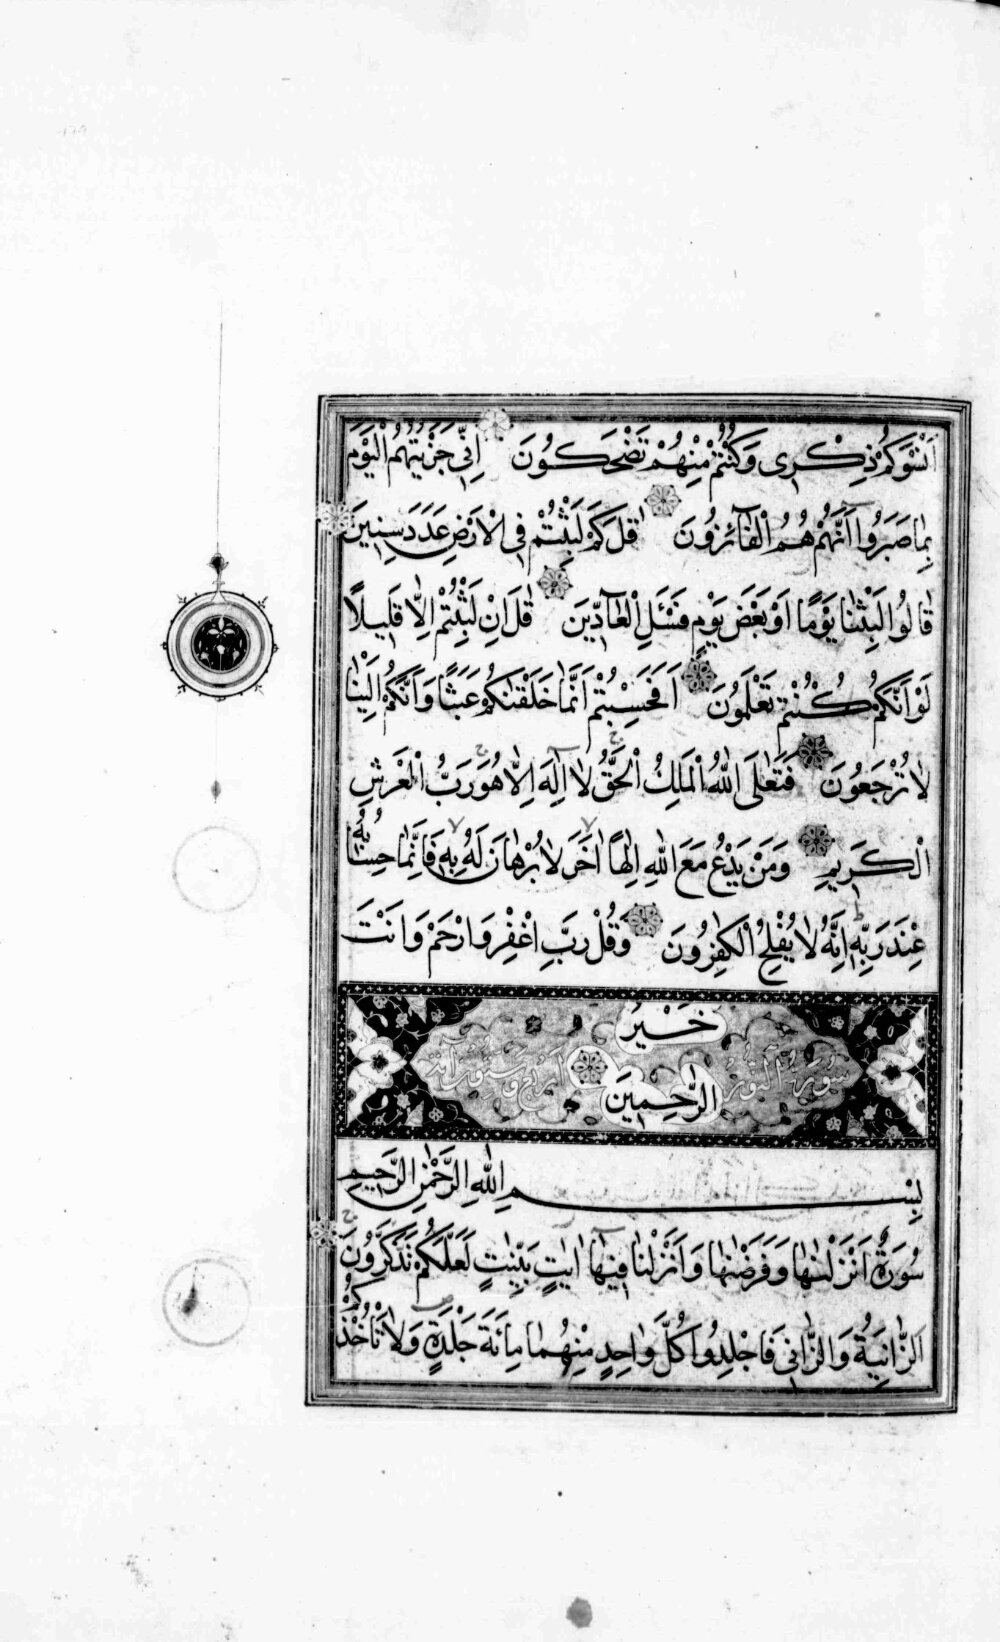 اَنْسَوْكُمْ ذِكْرِى وَكُنْتُمْ مِنْهُمْ تَضْحَكُونَ اِنِّى جَزَيْتُهُمُ الْيَوْمَ
بِمَا صَبَرُوا اَنَّهُمْ هُمُ الْفَآئِزُونَ قٰلَ كَمْ لَبِثْتُمْ فِى الْاَرْضِ عَدَدَ سِنِينَ
قَالُوا لَبِثْنَا يَوْمًا اَوْ بَعْضَ يَوْمٍ فَسْـَٔلِ الْعَآدِّينَ قٰلَ اِنْ لَبِثْتُمْ اِلَّا قَلِيلًا
لَوْ اَنَّكُمْ كُنْتُمْ تَعْلَمُونَ اَفَحَسِبْتُمْ اَنَّمَا خَلَقْنٰكُمْ عَبَثًا وَاَنَّكُمْ اِلَيْنَا
لَا تُرْجَعُونَ فَتَعٰلَى اللّٰهُ الْمَلِكُ الْحَقُّ لَآ اِلٰهَ اِلَّا هُوَ رَبُّ الْعَرْشِ
الْكَرِيمِ وَمَنْ يَدْعُ مَعَ اللّٰهِ اِلٰهًا اٰخَرَ لَا بُرْهَانَ لَهُ بِهِ فَاِنَّمَا حِسَابُهُ
عِنْدَ رَبِّهِ اِنَّهُ لَا يُفْلِحُ الْكٰفِرُونَ وَقُلْ رَبِّ اغْفِرْ وَارْحَمْ وَاَنْتَ
خَيْرُ
الرّٰحِمِينَ
سورة النور اربع وستون آية
بِسْمِ اللّٰهِ الرَّحْمٰنِ الرَّحِيمِ
سُورَةٌ اَنْزَلْنٰهَا وَفَرَضْنٰهَا وَاَنْزَلْنَا فِيهَآ اٰيٰتٍ بَيِّنٰتٍ لَعَلَّكُمْ تَذَكَّرُونَ
اَلزَّانِيَةُ وَالزَّانِى فَاجْلِدُوا كُلَّ وَاحِدٍ مِنْهُمَا مِائَةَ جَلْدَةٍ وَلَا تَأْخُذْكُمْ